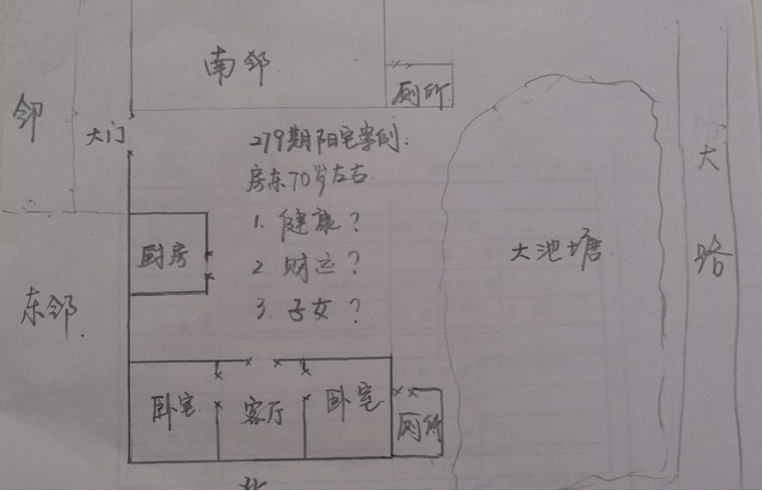 南邻
厕所
邻
大门
279期阳宅案例:
房东70岁左右
1. 健康?
2 财运?
3. 子女?
大路
大池塘
厨房
东邻
卧室
客厅
卧室
厕所
北